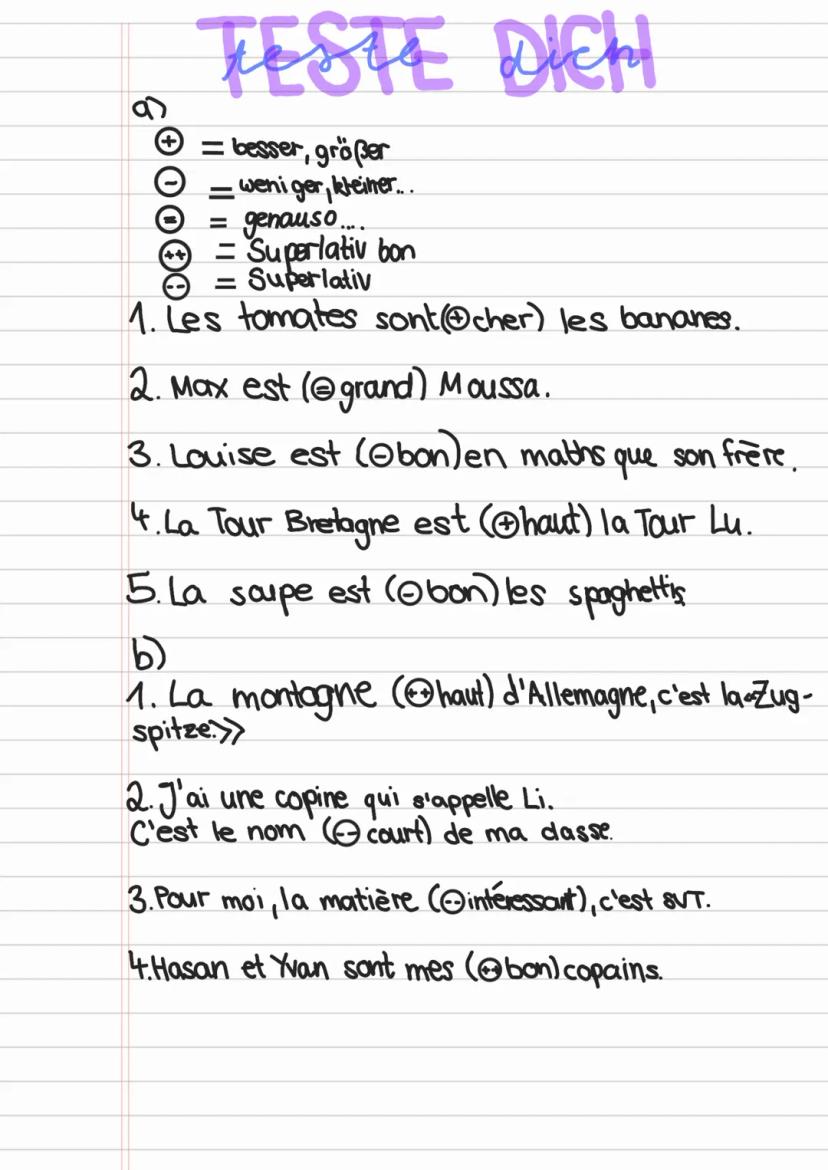 TESTE DICH
teste dich
a)
⊕ = besser, größer
⊖ = weniger, kleiner...
⊜ = genauso....
(++) = Superlativ bon
(--) = Superlativ
1. Les tomates sont (⊕ cher) les bananes.
2. Max est (⊜ grand) Moussa.
3. Louise est (⊖ bon) en maths que son frère.
4. La Tour Bretagne est (⊕ haut) la Tour Lu.
5. La soupe est (⊖ bon) les spaghettis
b)
1. La montagne (++ haut) d'Allemagne, c'est la «Zug-
spitze.»
2. J'ai une copine qui s'appelle Li.
C'est le nom (-- court) de ma classe.
3. Pour moi, la matière (-- intéressant), c'est SVT.
4. Hasan et Yvan sont mes (++ bon) copains.